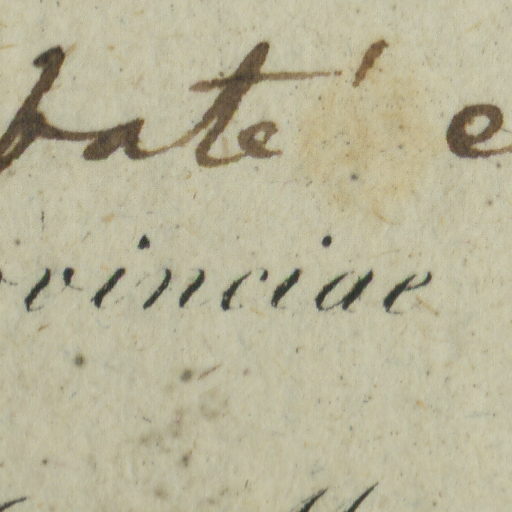 bate' e
ovinciae